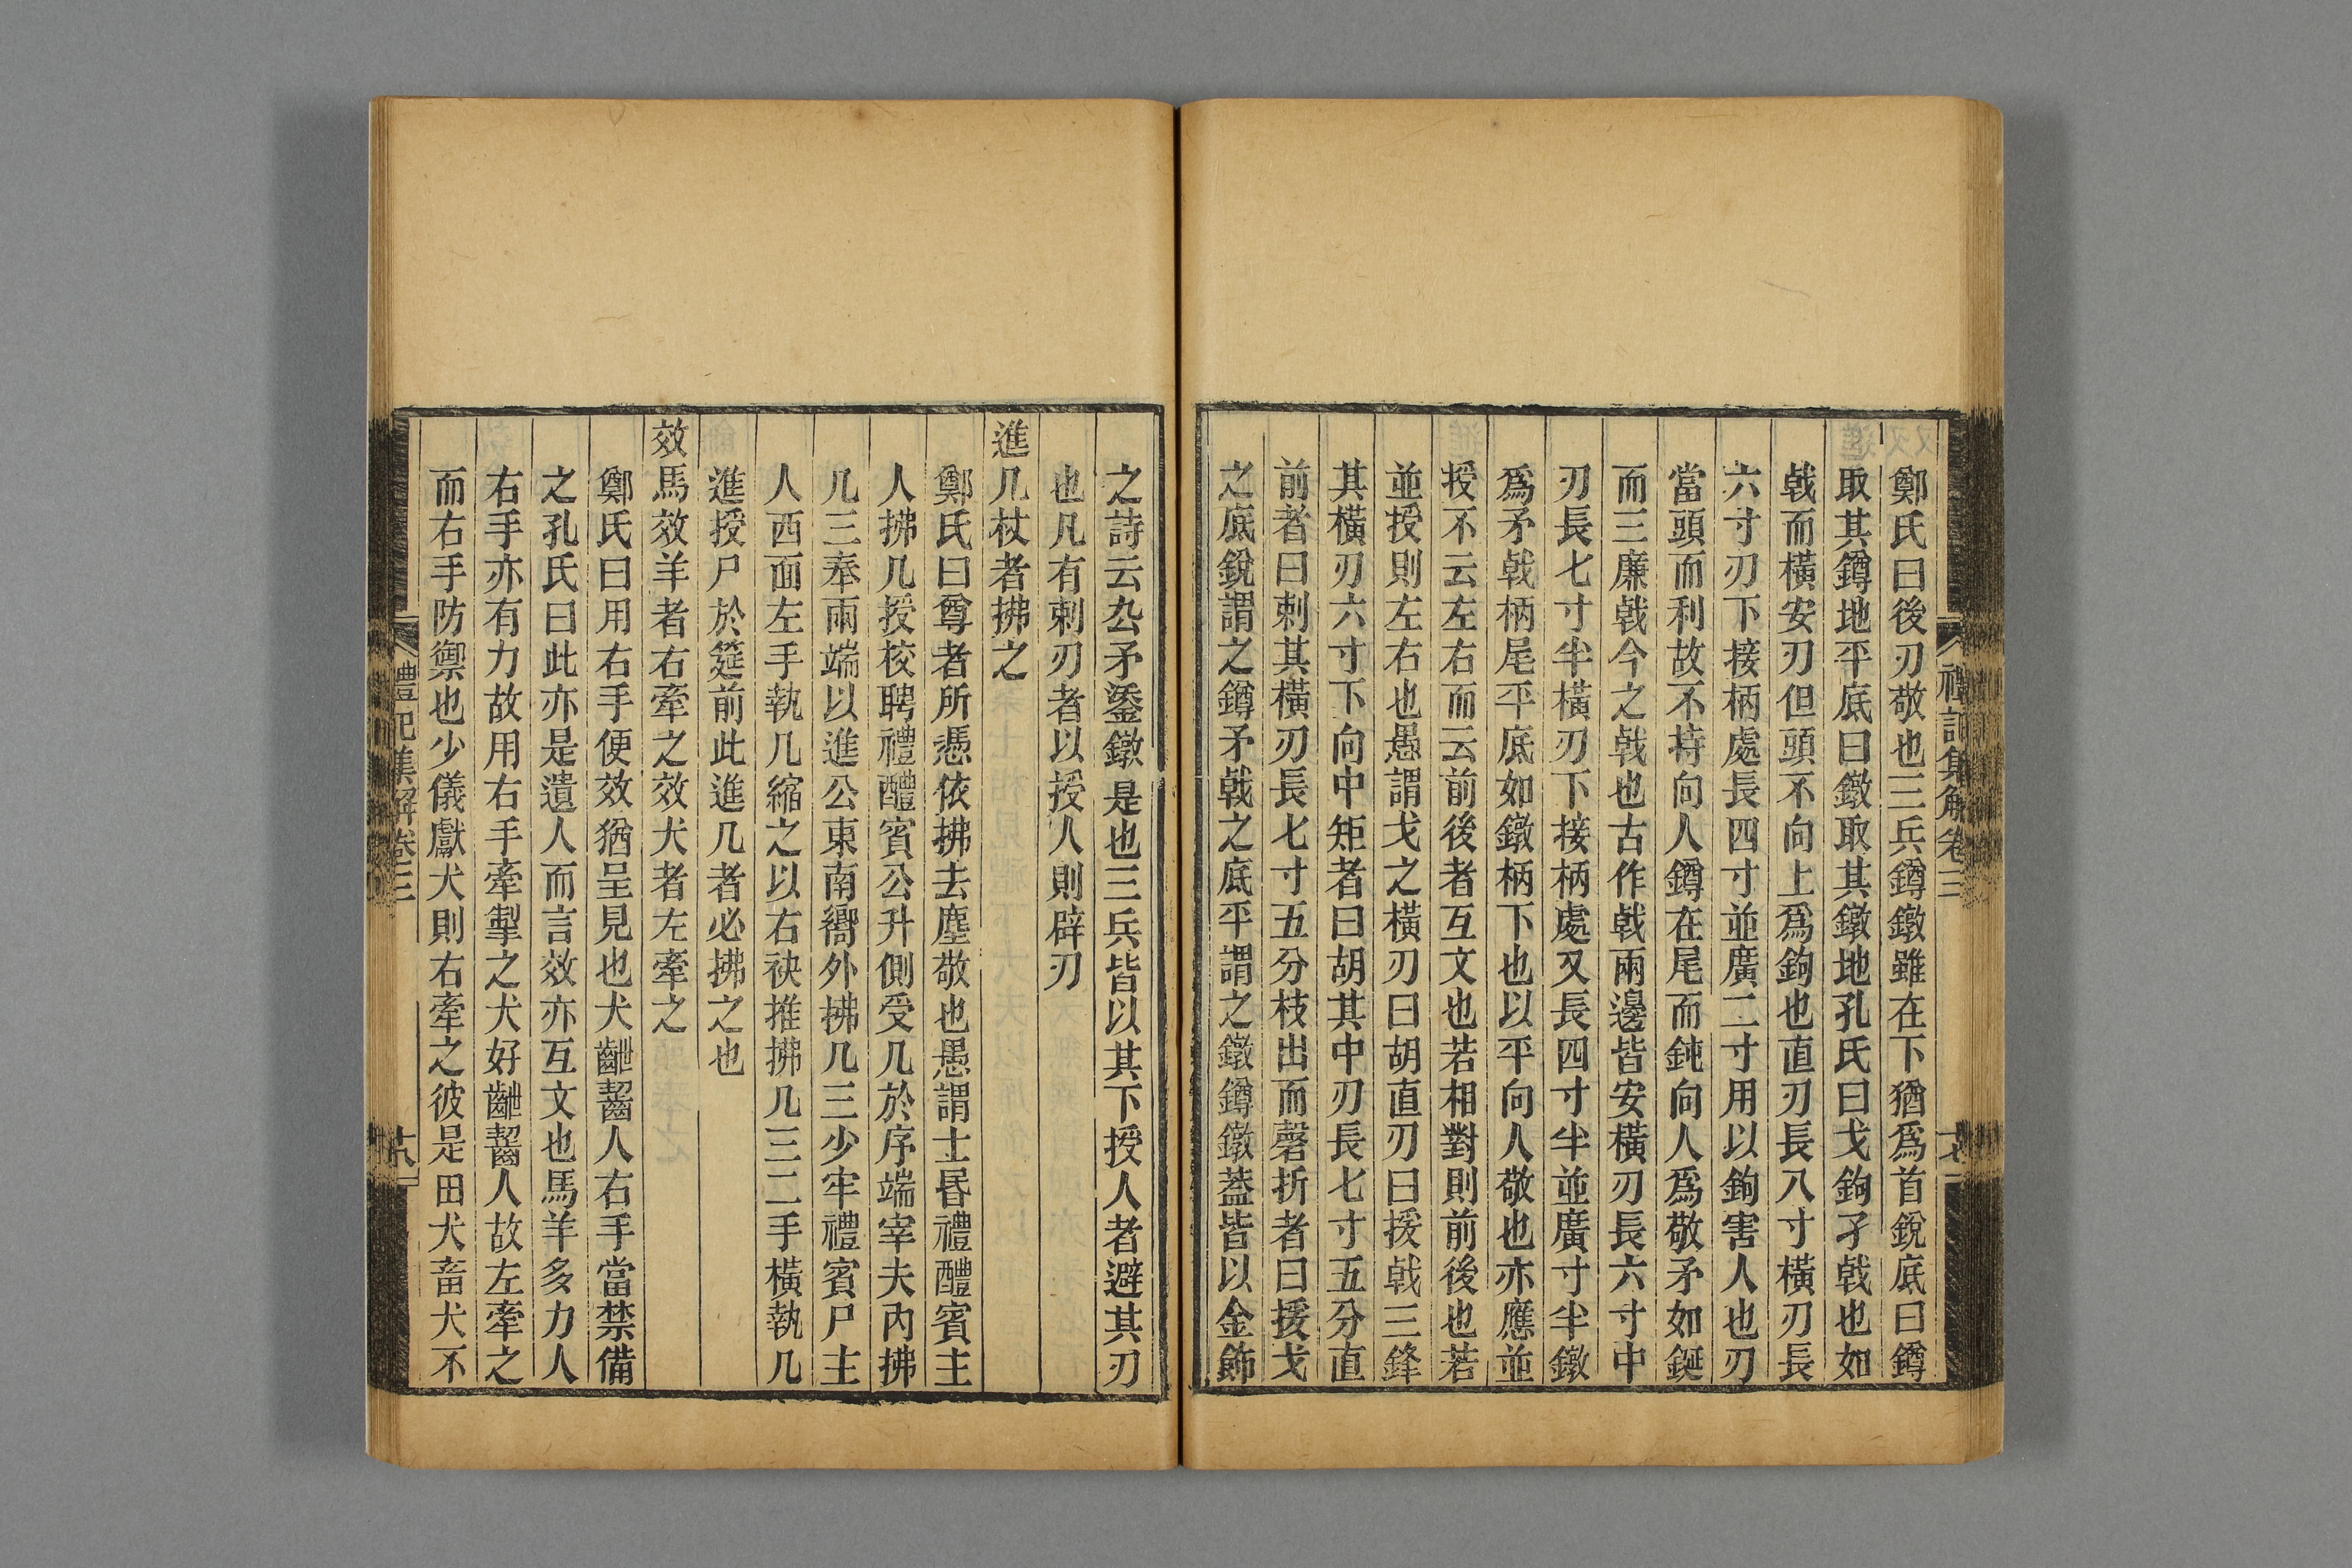 禮記集解卷三
鄭氏曰後刃敬也三兵鐏鐓雖在下猶爲首銳底曰鐏
取其鐏地平底曰鐓取其鐓地孔氏曰戈鉤孑戟也如
戟而橫安刃但頭不向上爲鉤也直刃長八寸橫刃長
六寸刃下接柄處長四寸並廣二寸用以鉤害人也刃
當頭而利故不持向人鐏在尾而鈍向人爲敬矛如鋋
而三廉戟今之戟也古作戟兩邊皆安橫刃長六寸中
刃長七寸半橫刃下接柄處又長四寸半並廣寸半鐓
爲矛戟柄尾平底如鐓柄下也以平向人敬也亦應並
授不云左右而云前後者互文也若相對則前後也若
並授則左右也愚謂戈之橫刃曰胡直刃曰援戟三鋒
其橫刃六寸下向中矩者曰胡其中刃長七寸五分直
前者曰刺其橫刃長七寸五分枝出而磬折者曰援戈
之底銳謂之鐏矛戟之底平謂之鐓鐏鐓葢皆以金飾
之詩云厹矛鋈鐓是也三兵皆以其下授人者避其刃
也凡有刺刃者以授人則辟刃
進几杖者拂之
鄭氏曰尊者所憑依拂去塵敬也愚謂士昬禮醴賓主
人拂几授校聘禮醴賓公升側受几於序端宰夫內拂
几三奉兩端以進公東南嚮外拂几三少牢禮賓尸主
人西面左手執几縮之以右袂推拂几三二手橫執几
進授尸於筵前此進几者必拂之也
效馬效羊者右牽之效犬者左牽之
鄭氏曰用右手便效猶呈見也犬齜齧人右手當禁備
之孔氏曰此亦是遺人而言效亦互文也馬羊多力人
右手亦有力故用右手牽掣之犬好齜齧人故左牽之
而右手防禦也少儀獻犬則右牽之彼是田犬畜犬不
禮記集解卷三